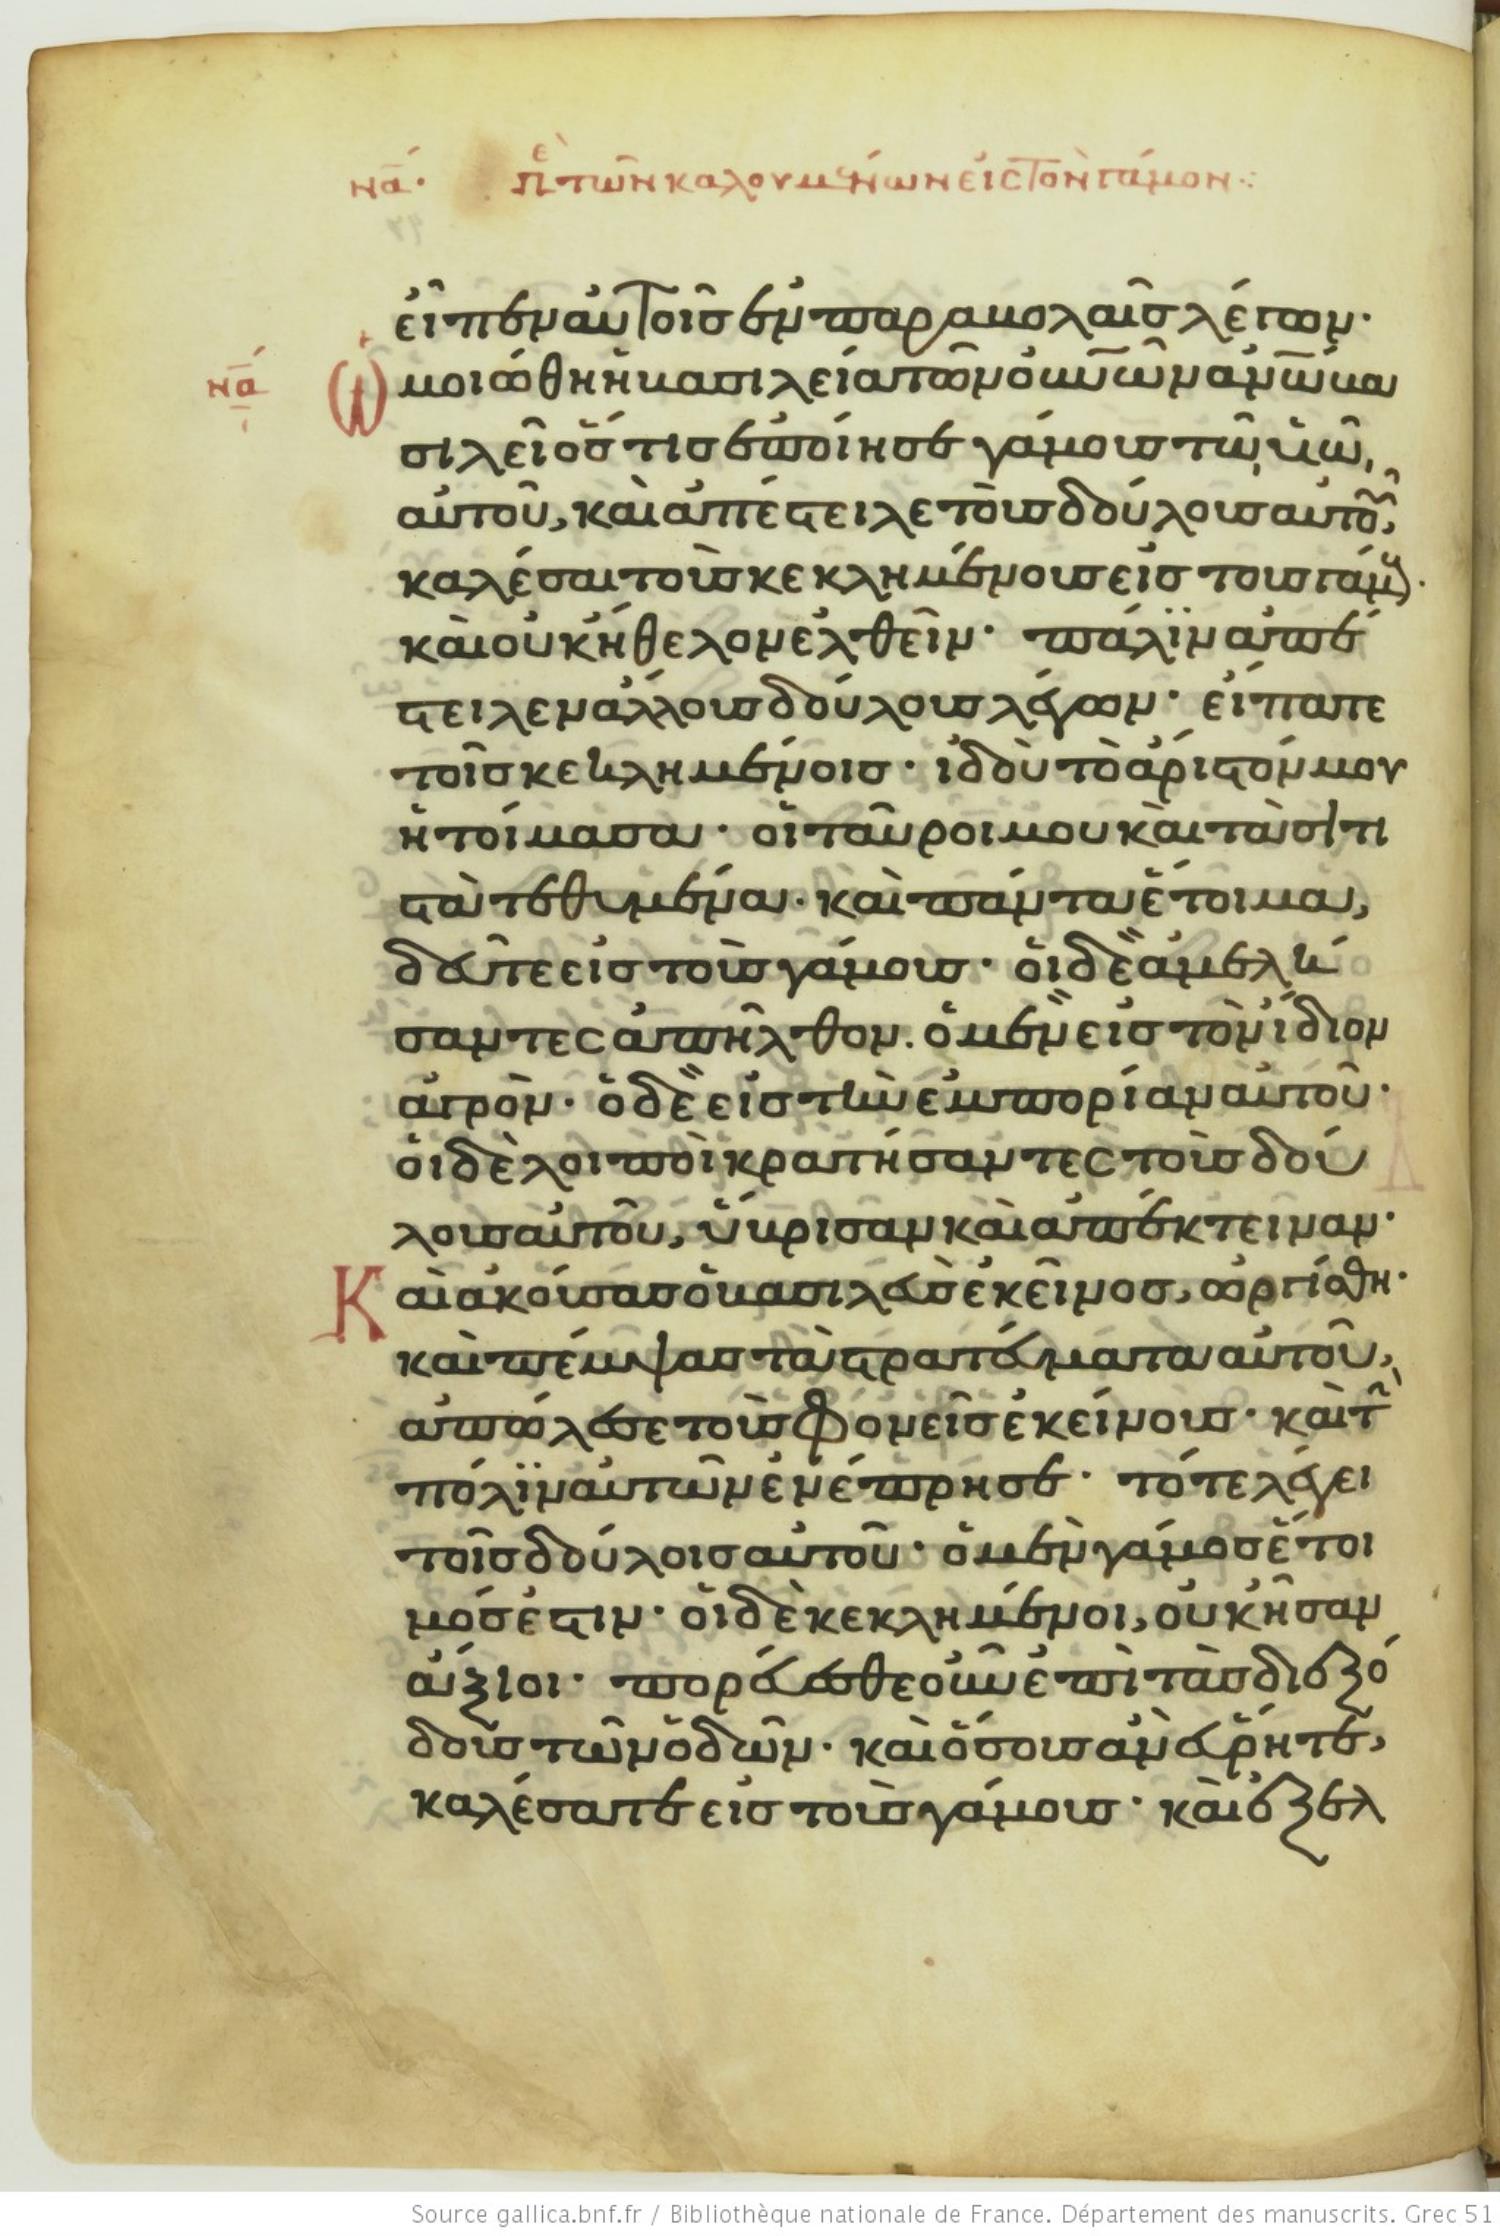 να· πε τῶν καλουμένων εἰς τὸν γάμον
εἶπεν αὐτοῖς ἐν παραβολαῖς λέγων·
να Ὡμοιώθη ἡ βασιλεία τῶν οὐνῶν ἀνω βα
σιλεῖ ὅστις ἐποίησε γάμους τῷ υἱῷ
αὐτοῦ, καὶ ἀπέστειλε τοὺς δούλους αὐτοῦ,
καλέσαι τοὺς κεκλημένους εἰς τοὺς γάμους·
καὶ οὐκ ἤθελον ἐλθεῖν· πάλϊν ἀπέ
στειλεν ἄλλους δούλους λέγων· εἴπατε
τοῖς κεκλημένοις· ἰδοὺ τὸ ἄριστόν μου
ἡτοίμασα· οἱ ταῦροί μου καὶ τὰ σιτι
στὰ τεθυμένα· καὶ πάντα ἕτοιμα,
δεῦτε εἰς τοὺς γάμους· οἱ δὲ ἀμελή
σαντες ἀπῆλθον. ὁ μὲν εἰς τὸν ἴδιον
ἀγρὸν· ὁ δὲ εἰς τὴν ἐμπορίαν αὐτοῦ·
οἱ δὲ λοιποὶ κρατήσαντες τοὺς δού
λους αὐτοῦ, ὕβρισαν καὶ ἀπέκτειναν·
Καὶ ἀκούσας ὁ βασιλεὺς ἐκεῖνος, ὠργίσθη·
καὶ πέμψας τὰ στρατεύματα αὐτοῦ,
ἀπώλεσε τοὺς φονεῖς ἐκείνους· καὶ τὴν
πόλϊν αὐτῶν ἐνέπρησε· τότε λέγει
τοῖς δούλοις αὐτοῦ· ὁ μὲν γάμος ἕτοι
μός ἐστιν· οἱ δὲ κεκλημένοι, οὐκ ἦσαν
ἄξιοι· πορεύεσθε οὖν ἐπὶ τὰς διεξό
δους τῶν ὁδῶν· καὶ ὅσους ἂν εὕρητε,
καλέσατε εἰς τοὺς γάμους· καὶ ἐξελ
Source gallica.bnf.fr / Bibliothèque nationale de France. Département des manuscrits. Grec 51